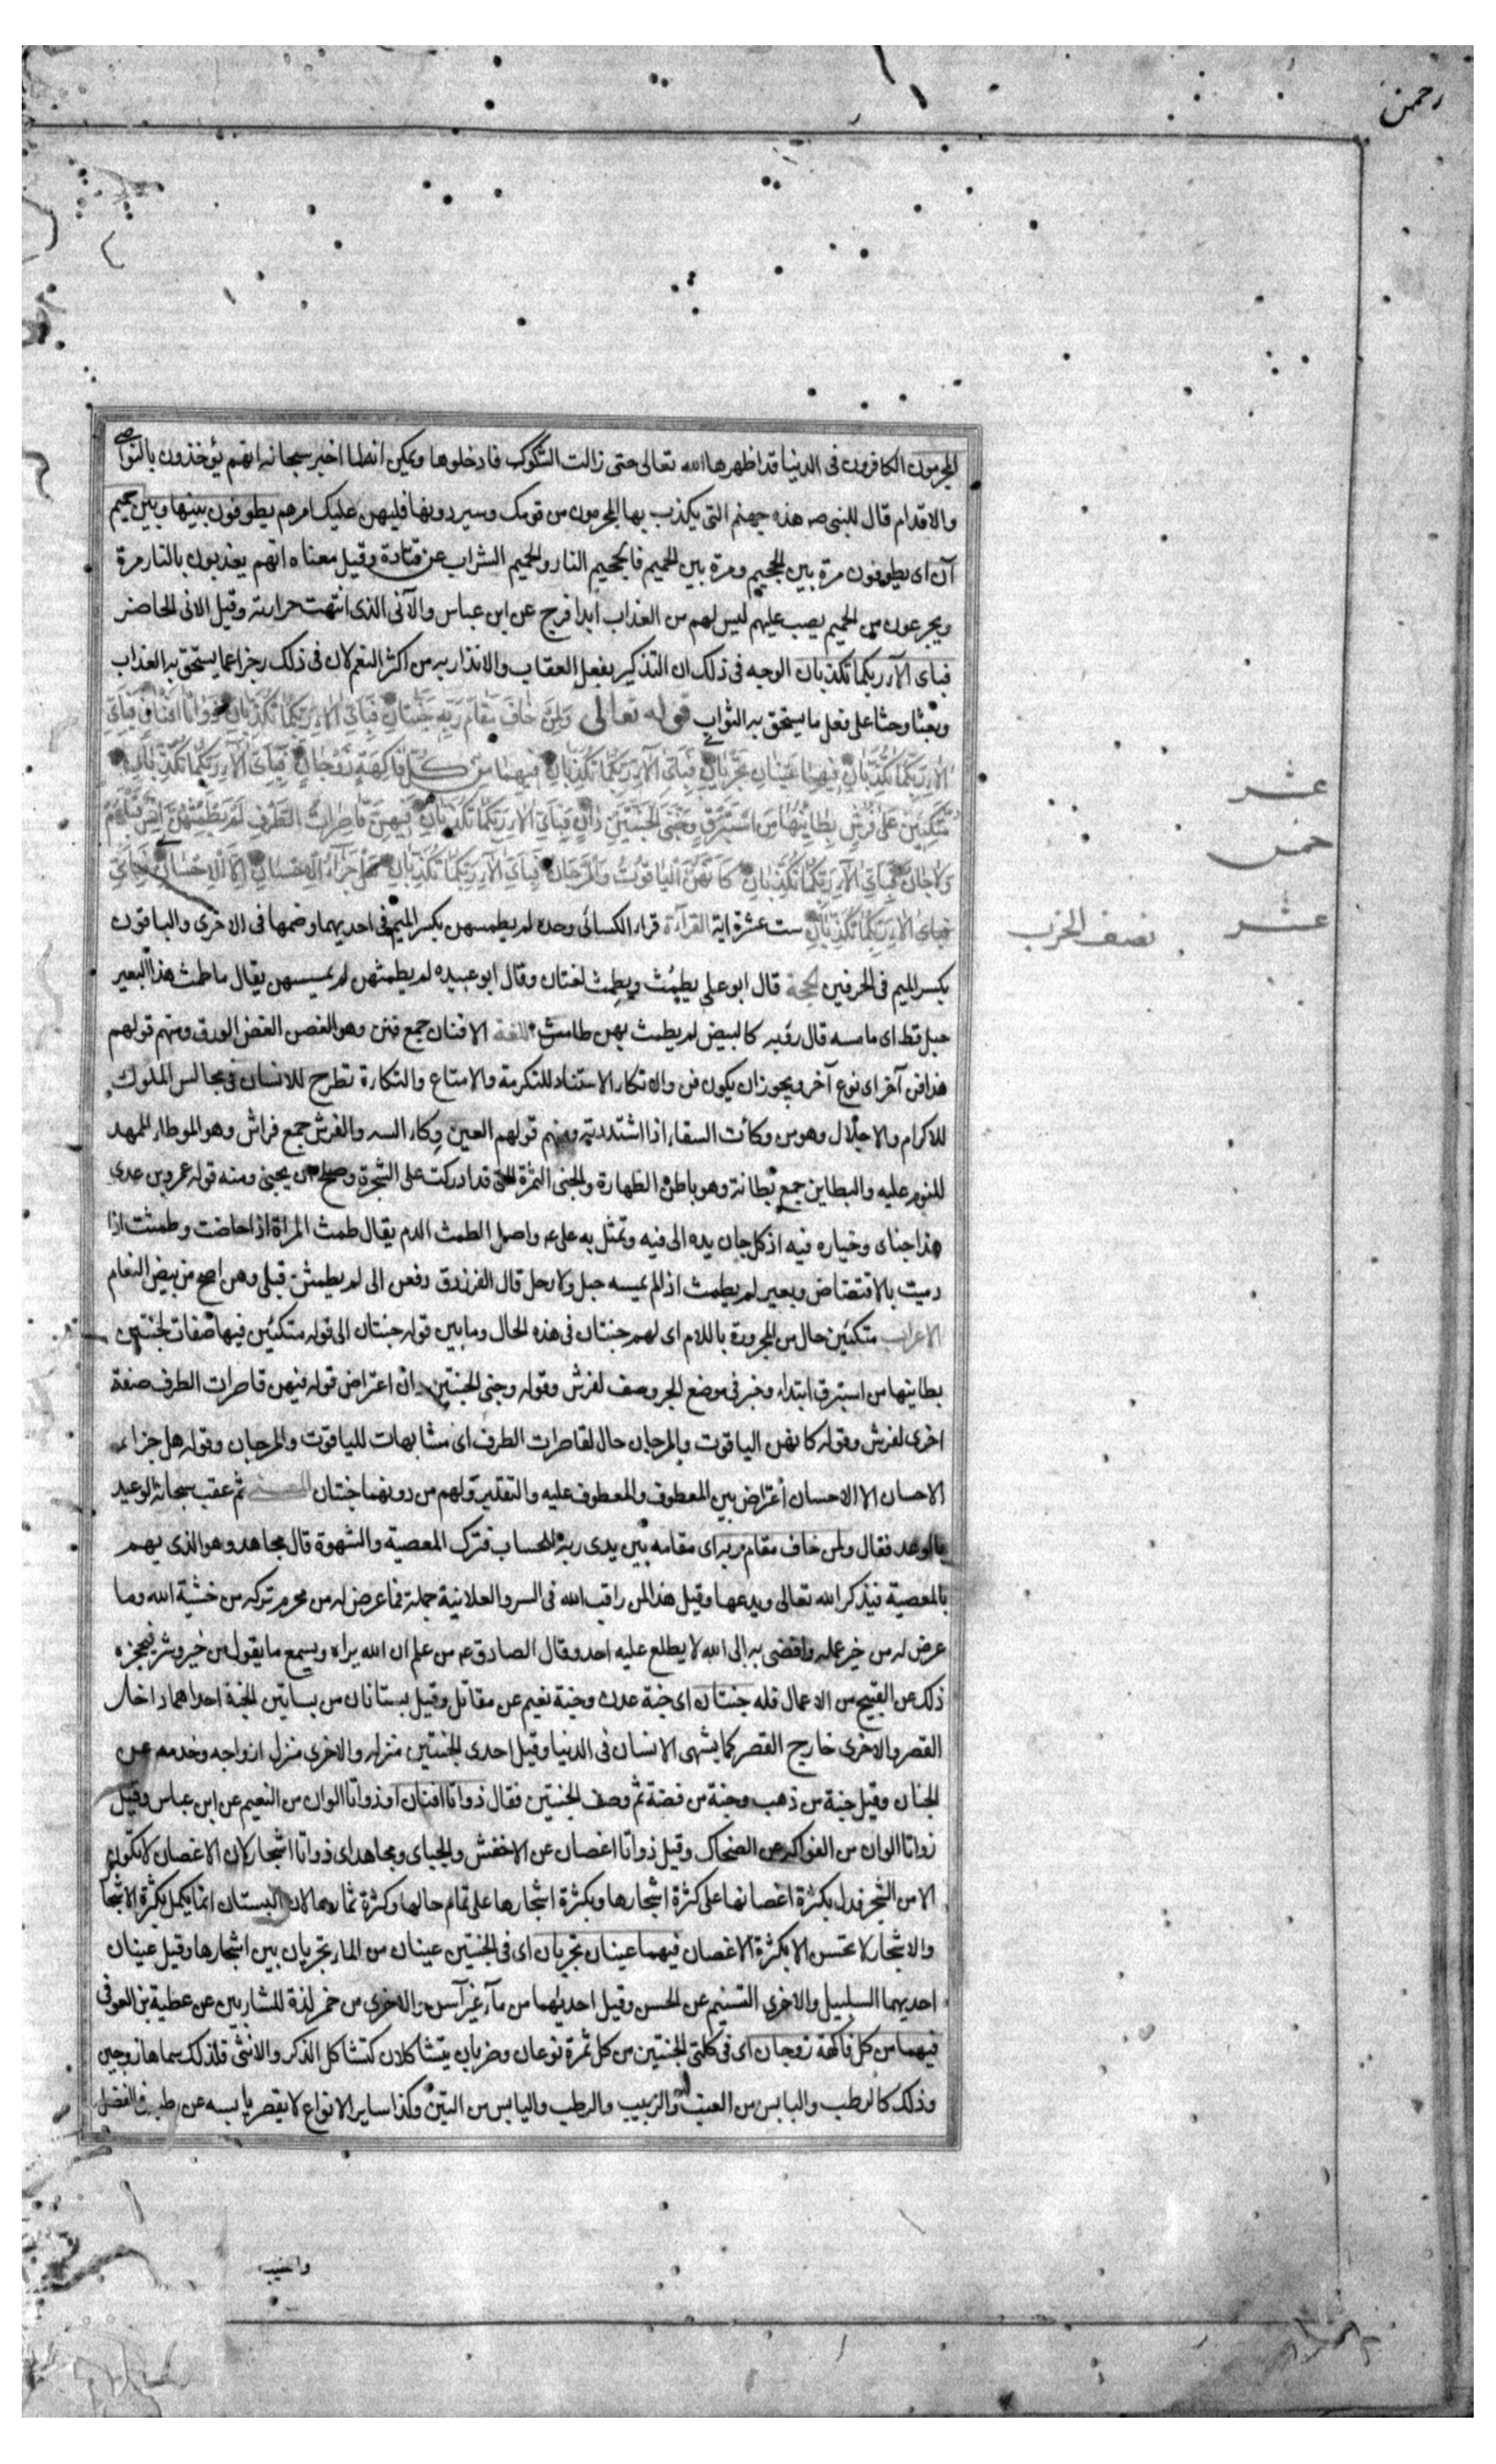 رحمن
المجرمون الكافرون فى الدنيا قد اظهرها الله تعالى حتى زالت الشكوك فادخلوها ويمكن انه لما اخبر سبحانه انهم يؤخذون بالنواصى
والاقدام قال للنبى صه هذه جهنم التى يكذب بها المجرمون من قومك وسيردونها فليهن عليك امرهم يطوفون بينها وبين حميم
آن اى يطوفون مرة بين الجحيم ومرة بين الحميم فالجحيم النار والحميم الشراب عن قتادة وقيل معناه انهم يعذبون بالنار مرة
ويجرعون من الحميم يصب عليهم ليس لهم من العذاب ابدا فرج عن ابن عباس والآنى الذى انتهت حرارته وقيل الانى الحاضر
فباى الآء ربكما تكذبان الوجه فى ذلك ان التذكير بفعل العقاب والانذار به من اكثر النعم لان فى ذلك زجرا عما يستحق به العذاب
وبعثا وحثا على فعل ما يستحق به الثواب قوله تعالى وَلِمَنْ خَافَ مَقَامَ رَبِّهِ جَنَّتَانِ فَبِاَىِّ الآءِ رَبِّكُمَا تُكَذِّبَانِ ذَوَاتَا اَفْنَانٍ فَبِاَىِّ
الآءِ رَبِّكُمَا تُكَذِّبَانِ فِيهِمَا عَيْنَانِ تَجْرِيَانِ فَبِاَىِّ الآءِ رَبِّكُمَا تُكَذِّبَانِ فِيهِمَا مِنْ كُلِّ فَاكِهَةٍ زَوْجَانِ فَبِاَىِّ الآءِ رَبِّكُمَا تُكَذِّبَانِ
مُتَّكِئِينَ عَلَى فُرُشٍ بَطَائِنُهَا مِنْ اِسْتَبْرَقٍ وَجَنَى الْجَنَّتَيْنِ دَانٍ فَبِاَىِّ الآءِ رَبِّكُمَا تُكَذِّبَانِ فِيهِنَّ قَاصِرَاتُ الطَّرْفِ لَمْ يَطْمِثْهُنَّ اِنْسٌ قَبْلَهُمْ
وَلا جَانٌّ فَبِاَىِّ الآءِ رَبِّكُمَا تُكَذِّبَانِ كَاَنَّهُنَّ الْيَاقُوتُ وَالْمَرْجَانُ فَبِاَىِّ الآءِ رَبِّكُمَا تُكَذِّبَانِ هَلْ جَزَآءُ الْاِحْسَانِ اِلاَّ الْاِحْسَانُ فَبِاَىِّ
فَبِاَىِّ الآءِ رَبِّكُمَا تُكَذِّبَانِ ست عشرة اية القراءة قراء الكسائى وحده لم يطمسهن بكسر الميم فى احديهما وضمها فى الاخرى والباقون
بكسر الميم فى الحرفين الحجة قال ابو على يطمُث ويطمِث لغتان وقال ابو عبيده لم يطمثهن لم يمسسهن يقال ما طمث هذا البعير
حبل قط اى ما مسه قال رؤبه كالبيض لم يطمث بهن طامث اللغة الافنان جمع فنن وهو الغصن الغض الورق ومنهم قولهم
هذا فن آخر اى نوع آخر ويجوز ان يكون فن والاتكاء الاستناد للتكرمة والامتاع والتكاءة تطرح للانسان فى مجالس الملوك
للاكرام والاجلال وهو من وكأت السقاء اذا اشتددته ومنهم قولهم العين وكاء السه والفرش جمع فراش وهو الموطاء الممهد
للنوم عليه والبطاين جمع بطانة وهو باطن الظهارة والجنى الثمرة التى قد ادركت على الشجرة وصلح ان يجنى ومنه قوله عمرو بن عدى
هذا جناى وخياره فيه اذ كل جان يده الى فيه وتمثل به على ع واصل الطمث الدم يقال طمث المراة اذا حاضت وطمثت اذا
دميت بالاقتضاض وبعير لم يطمث اذا لم يمسه حبل ولا رحل قال الفرزدق دفعن الى لم يطمثن قبلى وهن اصح من بيض النعام
الاعراب متكئين حال من المجرورة باللام اى لهم جنتان فى هذه الحال وما بين قوله جنتان الى قوله متكئين فيها صفات لجنتين
بطاينها من استبرق ابتداء وخبر فى موضع الجر وصف لفرش وقوله وجنى الجنتين دان اعتراض قوله فيهن قاصرات الطرف صفة
اخرى لفرش وقوله كانهن الياقوت والمرجان حال لقاصرات الطرف اى مشابهات للياقوت والمرجان وقوله هل جزاء
الاحسان الا الاحسان اعتراض بين المعطوف والمعطوف عليه والتقدير ولهم من دونهما جنتان المعنى ثم عقب سبحانه الوعيد
بالوعد فقال ولمن خاف مقام ربه اى مقامه بين يدى ربه للحساب فترك المعصية والشهوة قال مجاهد وهو الذى يهم
بالمعصية فيذكر الله تعالى ويدعها وقيل هذا لمن راقب الله فى السر والعلانية جملة فما عرض له من محرم تركه من خشية الله وما
عرض له من خير عمله وافضى به الى الله لا يطلع عليه احد وقال الصادق ع من علم ان الله يراه ويسمع ما يقول من خير وشر فيحجزه
ذلك عن القبيح من الاعمال فله جنتان اى جنة عدن وجنة نعيم عن مقاتل وقيل بستانان من بساتين الجنة احداهما داخل
القصر والاخرى خارج القصر كما يشتهى الانسان فى الدنيا وقيل احدى الجنتين منزله والاخرى منزل ازواجه وخدمه عن
الجبان وقيل جنة من ذهب وجنة من فضة ثم وصف الجنتين فقال ذواتا افنان اى ذواتا الوان من النعيم عن ابن عباس وقيل
ذواتا الوان من الفواكه عن الضحاك وقيل ذواتا اغصان عن الاخفش والجباى ومجاهد اى ذواتا اشجار لان الاغصان لا تكون
الا من الشجر فدل بكثرة اغصانها على كثرة اشجارها وبكثرة اشجارها على تمام حالها وكثرة ثمارها لان البستان انما يكمل بكثرة الاشجار
والاشجار لا تحسن الا بكثرة الاغصان فيهما عينان تجريان اى فى الجنتين عينان من الماء تجريان بين اشجارها وقيل عينان
احديهما السلسبيل والاخرى التسنيم عن الحسن وقيل احديهما من مآء غير آسن والاخرى من خمر لذة للشاربين عن عطية بن العوفى
فيهما من كل فاكهة زوجان اى فى كلتى الجنتين من كل ثمرة نوعان وضربان يتشاكلان كتشاكل الذكر والانثى فلذلك سماها زوجين
وذلك كالرطب واليابس من العنب والزبيب والرطب واليابس من التين وكذا ساير الانواع لا يقصر يابسه عن رطبه فى الفضل
عشر
خمس
عشر
نصف الحزب